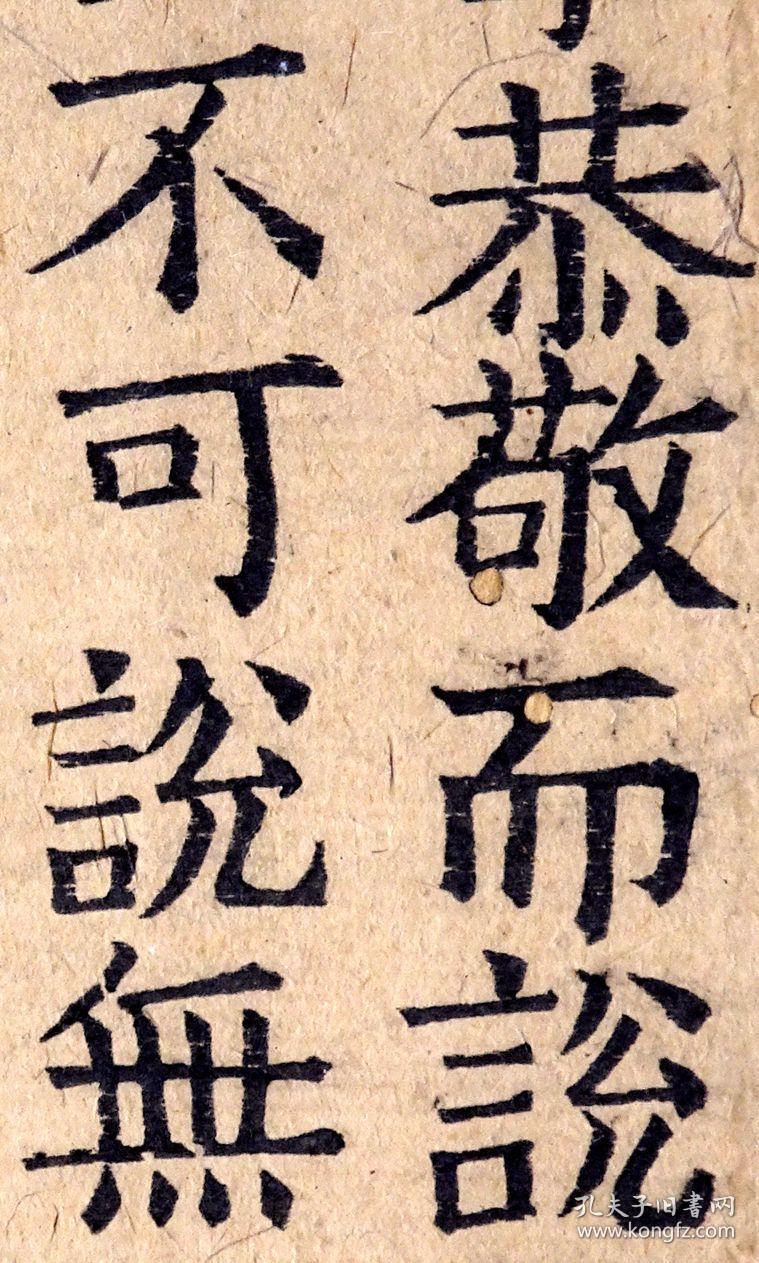 恭敬而說
不可說無
孔夫子旧書网
www.kongfz.com